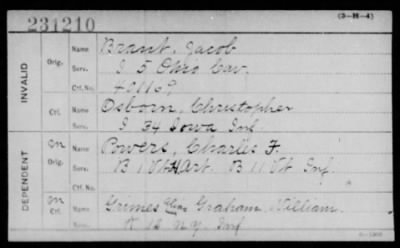 231210
(3-H-4)
INVALID
Orig.
Name Brant, Jacob
Serv. I 5 Ohio Cav.
Ctf. No.
Ctf.
Name Osborn, Christopher
Serv. I 34 Iowa Inf
DEPENDENT
Orig.
Name Powers, Charles F.
Serv. B 1 Vt H Art. B 11 Vt Inf.
Ctf. No.
m
Ctf.
Name Grimes alias Graham, William
Serv. K N.Y. Inf